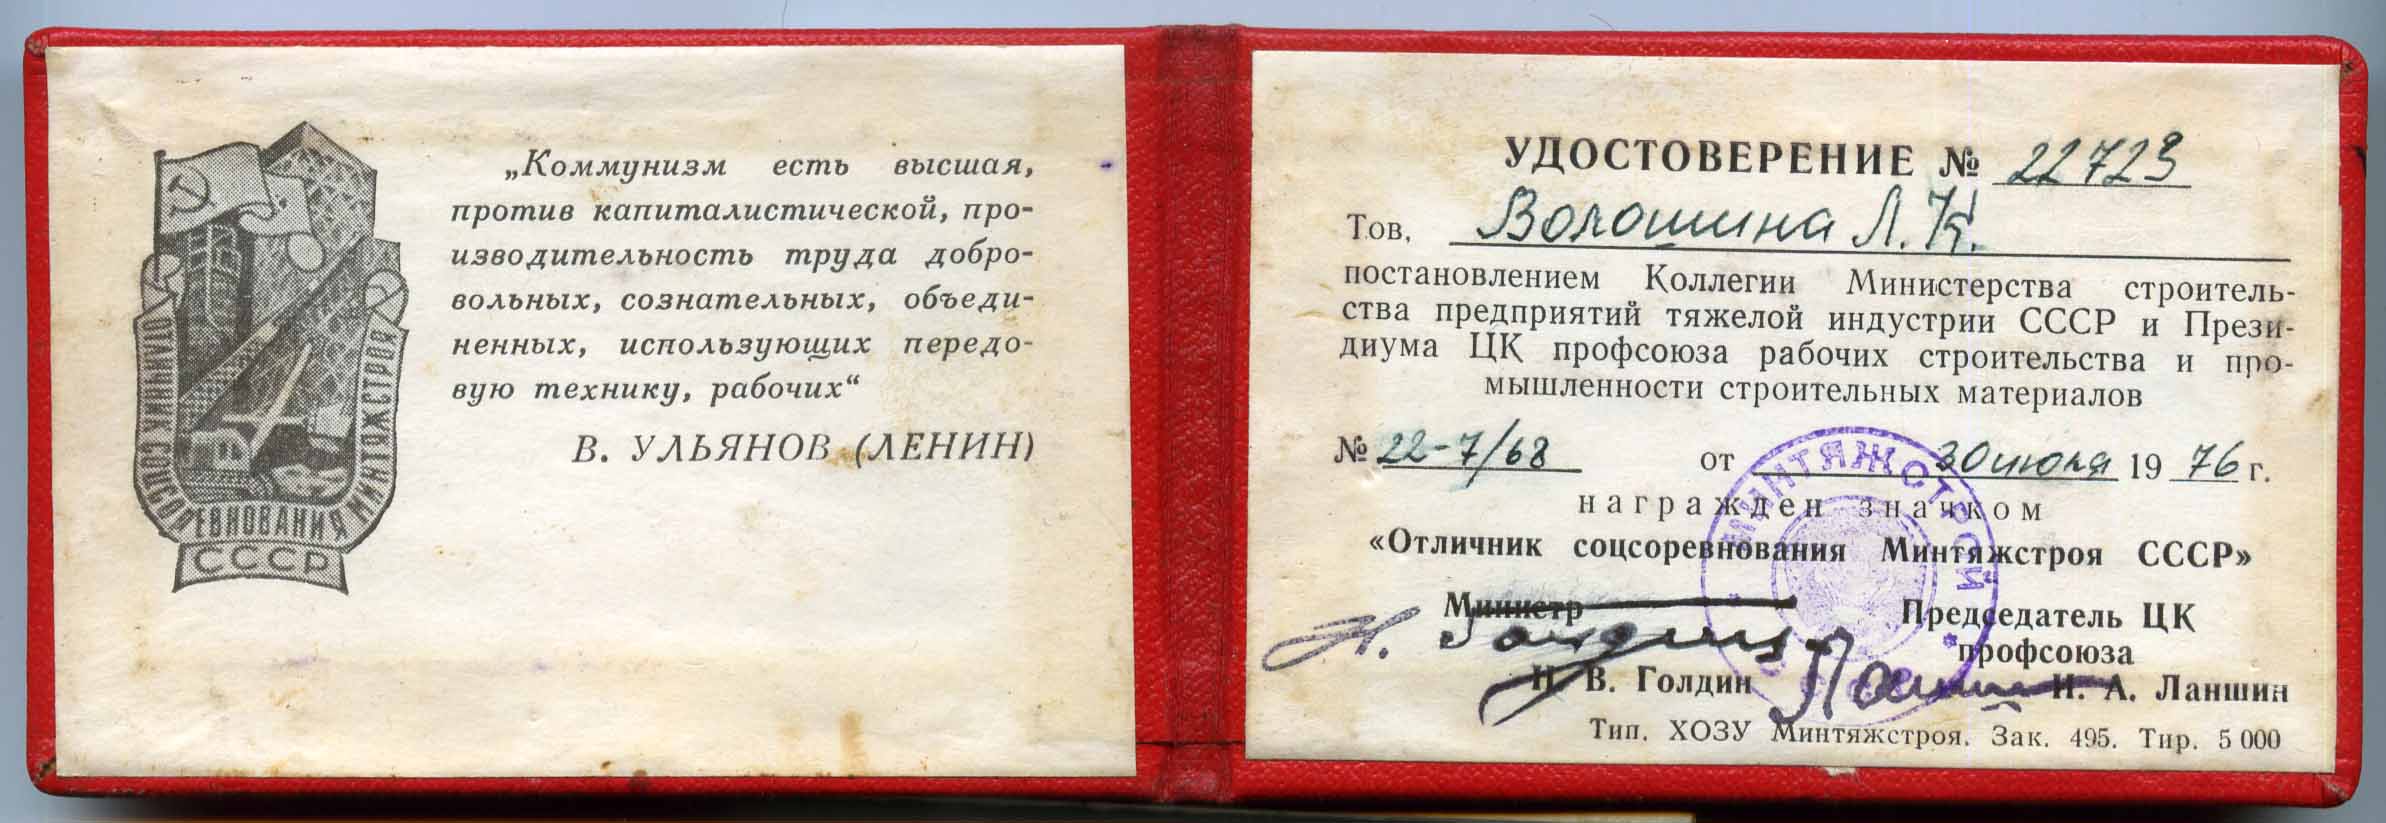 ОТЛИЧНИК СОЦСОРЕВНОВАНИЯ МИНТЯЖСТРОЯ
СССР
„Коммунизм есть высшая,
против капиталистической, про-
изводительность труда добро-
вольных, сознательных, объеди-
ненных, использующих передо-
вую технику, рабочих“
В. УЛЬЯНОВ (ЛЕНИН)
УДОСТОВЕРЕНИЕ № 22723
Тов. Волошина Л. К.
постановлением Коллегии Министерства строитель-
ства предприятий тяжелой индустрии СССР и Прези-
диума ЦК профсоюза рабочих строительства и про-
мышленности строительных материалов
№ 22-7/68 от 30 июня 1976 г.
награжден значком
«Отличник соцсоревнования Минтяжстроя СССР»
МИНТЯЖСТРОЙ
СССР
Министр Председатель ЦК
профсоюза
Н. В. Голдин И. А. Ланшин
Тип. ХОЗУ Минтяжстроя. Зак. 495. Тир. 5 000